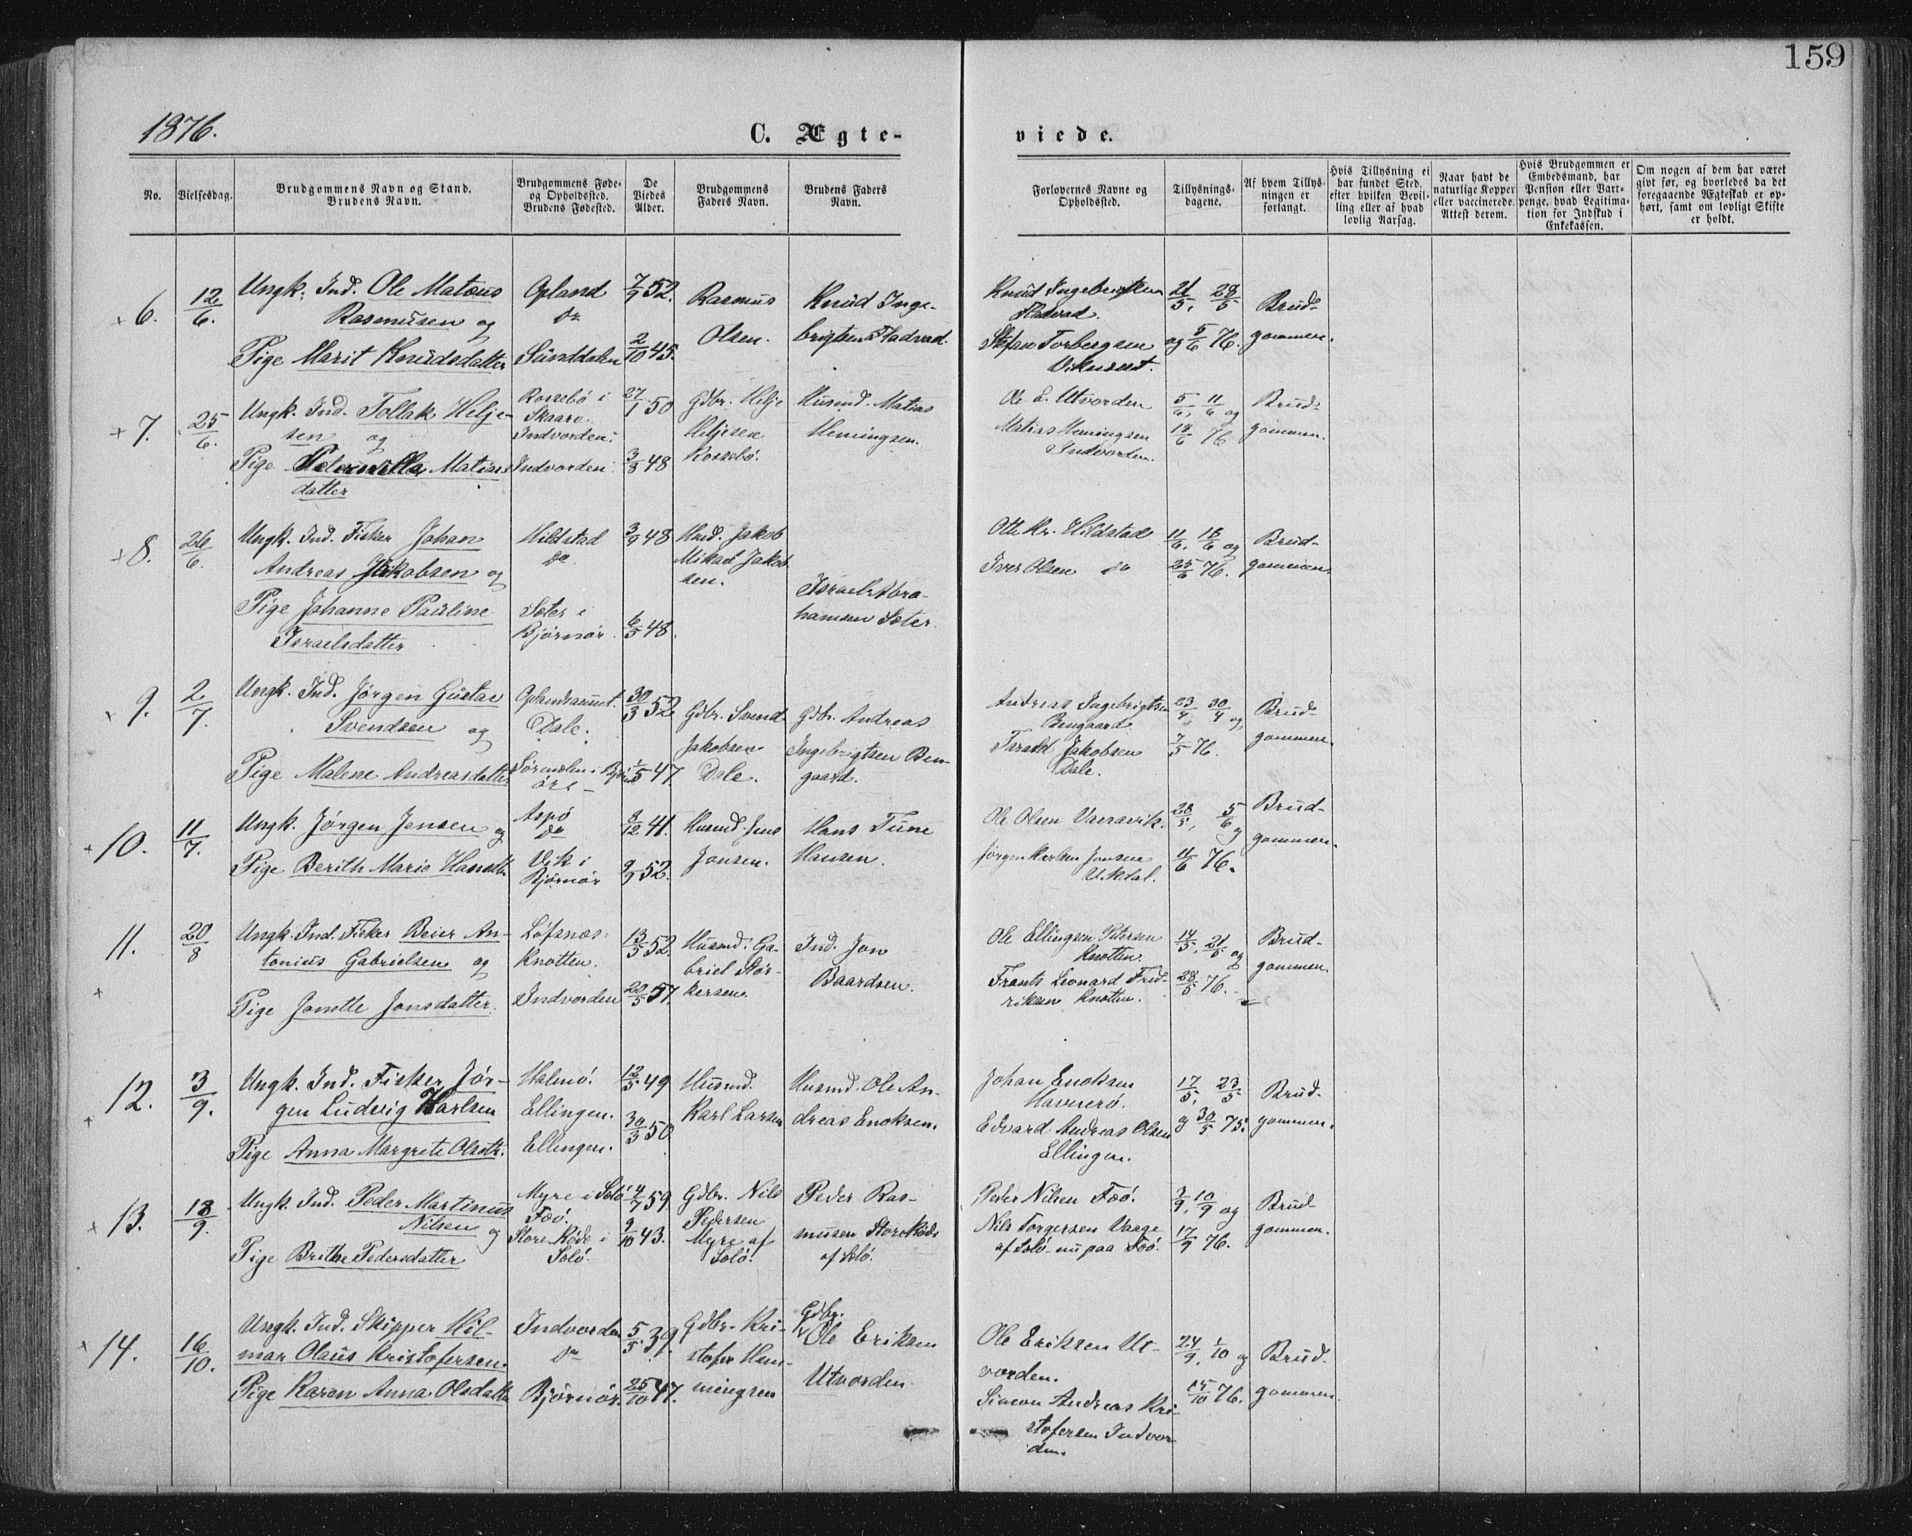 159
1876.
C. Ægte-
viede.
No.
Vielsesdag.
Brudgommens Navn og Stand.
Brudens Navn.
Brudgommens Føde-
og Opholdssted.
Brudens Fødested.
De
Viedes
Alder.
Brudgommens
Faders Navn.
Brudens Faders
Navn.
Forlovernes Navne og
Opholdssted.
Tillysnings-
dagene.
Af hvem Tillys-
ningen er
forlangt.
Hvis Tillysning ei
har fundet Sted,
efter hvilken Bevil-
ling eller af hvad
lovlig Aarsag.
Naar havt de
naturlige Kopper
eller vaccinerede.
Attest derom.
Hvis Brudgommen er
Embedsmand, har
Pension eller Vart-
penge, hvad Legitima-
tion for Indskud i
Enkekassen.
Om nogen af dem har været
givt før, og hvorledes da det
foregaaende Ægteskab er op-
hørt, samt om lovligt Skifte
er holdt.
6. 12/6.
Ungk. Ind. Ole Mataus
Rasmusen og
Pige Marit Knudsdatter
Opland
do
Sunddalen
7/9 52.
2/10 45.
Rasmus
Olsen.
Knud Inge-
brigtsen Hadvad.
Knud Ingebrigtsen
Hadvad.
Stefan Torbergsen
21/5, 28/5
og 5/6 76.
Brud-
gommen.
7. 25/6.
Ungk. Ind. Tollak Helje-
sen og
Pige Peternilla Matias
datter
Rossebø i
Skaare.
Indvorden.
Indvorden.
27/1 50
3/8 48
Gdbr. Helje
Heljesen
Rossebø.
Husmd. Matias
Hemingsen.
Ole E. Utvorden
Matias Hemingsen
Indvorden.
5/6, 11/6 og
18/6 76
Brud-
gommen.
8. 26/6.
Ungk. Ind. Fisker Johan
Andreas Jakobsen og
Pige Johanne Pauline
Israelsdatter
Hildstad
do
Sæter i
Bjørnør.
3/9 48
6/5 48.
Husd. Jakob
Mikal Jakob
sen.
Israel Abra-
hamsen Sæter.
Otte Kr. Hildstad
Iver Olsen do
11/6, 18/6 og
25/6 76.
Brud-
gommen.
9. 2/7.
Ungk. Ind. Jørgen Gustav
Svendsen og
Pige Malene Andreasdatter
Dale.
30/3 52.
1/5 47.
Gdbr. Svend
Jakobsen
Dale.
Gdbr. Andreas
Ingebrigtsen Ben-
gaard.
Andreas Ingebrigtsen
Bengaard
Jakobsen
Dale.
23/4, 30/4 og
7/5 76.
Brud-
gommen.
10. 11/7.
Ungk. Jørgen Jensen og
Pige Berith Marie Hansdtr
Aspø
do
Vik i
Bjørnør
8/12 41.
9/9 52.
Husmd. Jens
Jonsen.
Hans Tune
Hansen.
Ole Olsen
Jørgen Jensen
28/5, 5/6 og
11/6 76.
Brud-
gommen.
11. 20/8
Ungk. Ind. Fisker Beier An-
tonius Gabrielsen og
Pige Jonette Jonsdatter.
Løfsnæs-
knotten.
Indvorden
13/5 52.
20/5 57.
Husmd. Ga-
briel Stør-
kersen.
Ind. Jon
Baardsen.
Ole Ellingsen Petersen
Knotten.
Frants Leonard Fred-
riksen Knotten.
14/5, 21/5 og
28/5 76.
Brud-
gommen.
12. 3/9.
Ungk. Ind. Fisker Jør-
gen Ludvig Karlsen
Pige Anna Margrete Olsdtr.
Halmø.
Ellingen.
Ellingen.
12/5 49
30/3 50.
Husmd.
Karl Larsen
Husmd. Ole An-
dreas Enoksen.
Johan Enoksen
Edvard Andreas Olsen
Ellingen.
17/5, 23/5
og 30/5 75.
Brud-
gommen.
13. 18/9.
Ungk. Ind. Peder Martinus
Nilsen og
Pige Brithe Pedersdatter
Myre i Solø
Faø.
Store Røde i
Solø.
4/7 59
9/10 43.
Gdbr. Nils
Pedersen
Myre af
Solø.
Peder Ras-
musen Store Røde
af Solø.
Peder Nilsen Faø.
Nils Torgersen Varge
af Solø nu paa Faø.
3/9, 10/9 og
17/9 76.
Brud
gommen.
14. 16/10.
Ungk. Ind. Skipper Hil-
mar Olaus Kristofersen
Pige Karen Anna Olsdatter
Indvorden
do
Bjørnør.
5/5 39.
25/10 47.
Gdbr. Kri-
stofer Hem-
mingsen
Gdbr.
Ole Eriksen
Utvorden
Ole Eriksen Ut-
vorden.
Simon Andreas Kri-
stofersen Indvor
den.
24/9, 1/10 og
15/10 76.
Brud-
gommen.